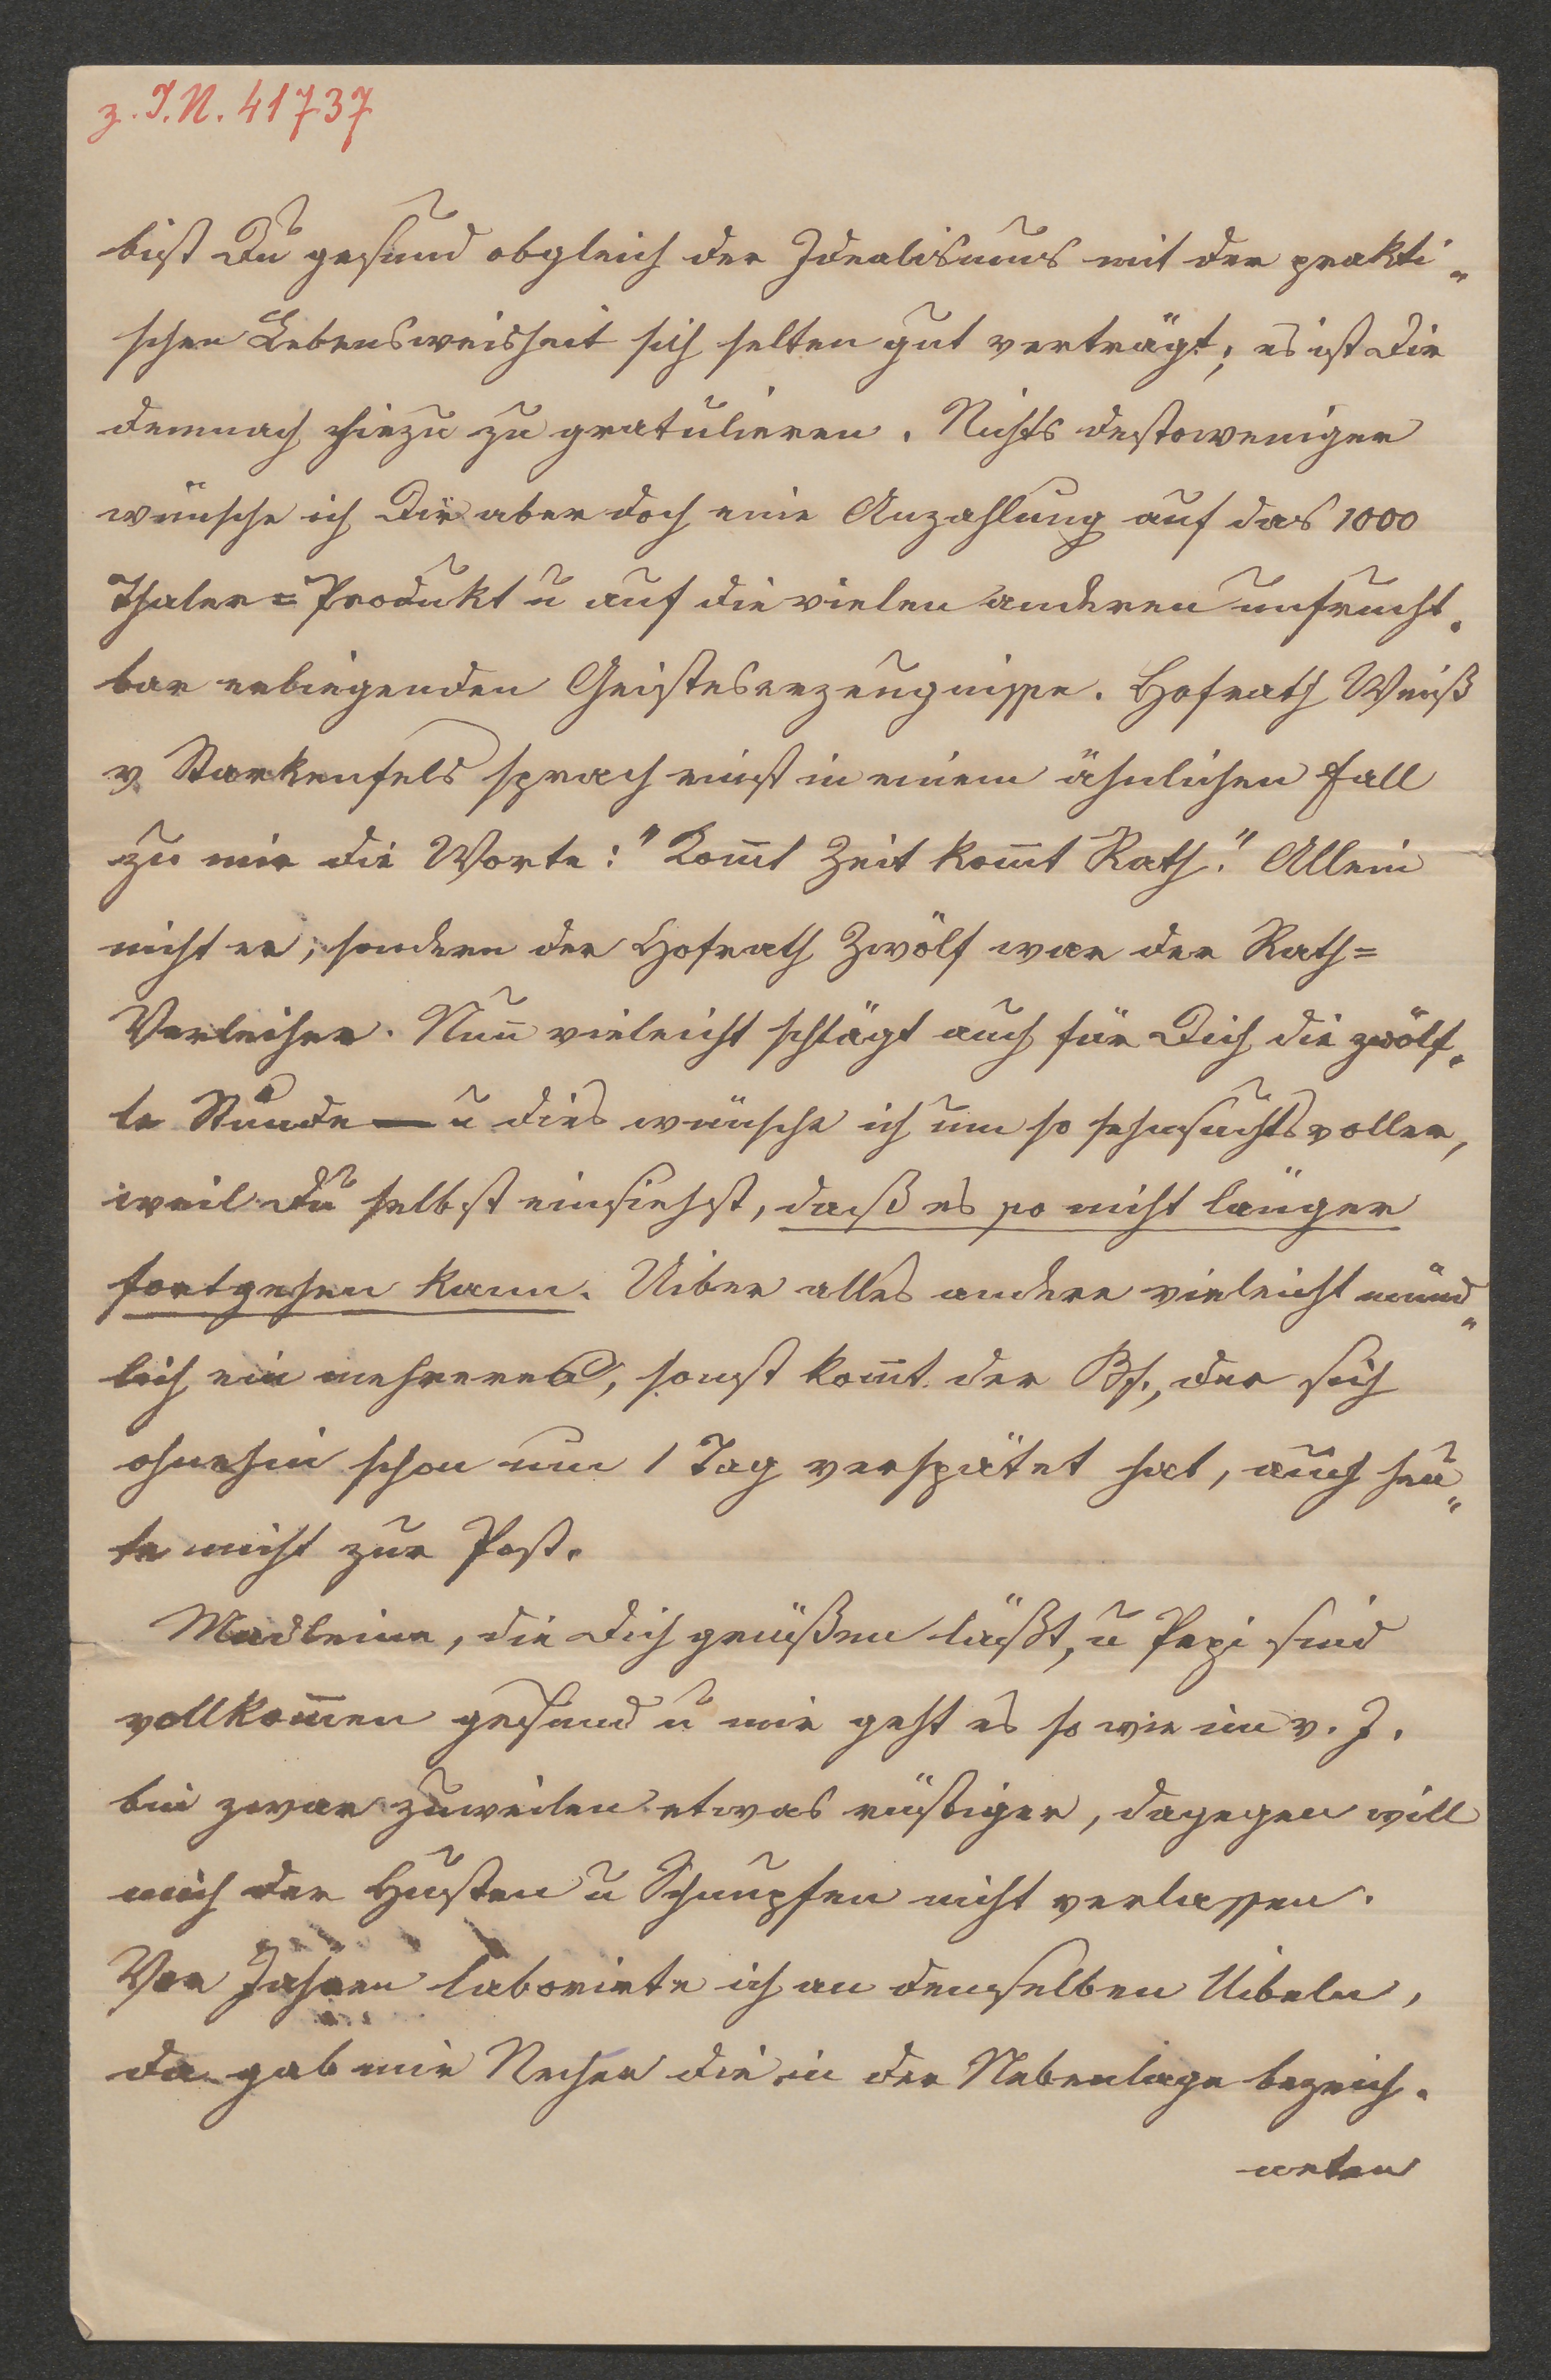 z. I.N. 41737
bist Du gesund obgleich der Idealismus mit der prakti„
schen Lebensweisheit sich selten gut verträgt; es ist Dir
demnach hiezu zu gratulieren. Nichts destoweniger
wünsche ich Dir aber doch eine Anzahlung auf das 1000
Thaler=Produkt u auf die vielen anderen unfrucht„
bar erliegenden Geisteserzeugnisse. Hofrath Weiß
v Starkenfels sprach einst in einem ähnlichen Fall
zu mir die Worte: "Kom̄t Zeit kom̄t Rath." Allein
nicht er, sondern der Hofrath Zwölf war der Rath=
Verleiher. Nun̄ vieleicht schlägt auch für Dich die zwölf„
te Stunde — u dies wünsche ich um so sehnsuchtsvoller,
weil Du selbst einsiehst, daß es so nicht länger
fortgehen kann. Uiber alles andere vieleicht münd„
lich ein mehreres, sonst kom̄t der Bf., der sich
ohnehin schon um 1 Tag verspätet hat, auch heu„
te nicht zur Post.
Madleine, die Dich grüßen läßt, u Pepi sind
vollkom̄en gesund u mir geht es so wie im v. J.
bin zwar zuweilen etwas rüstiger, dagegen will
mich der Husten u Schnupfen nicht verlassen.
Vor Jahren laborirte ich an demselben Uibeln,
da gab mir Necher die in der Nebenlage bezeich„
neten